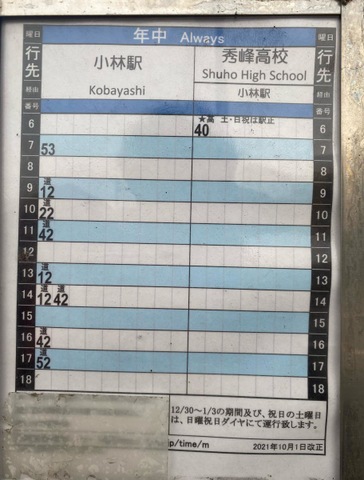 曜日 年中 Always 曜日
行先 小林駅 Kobayashi 秀峰高校 Shuho High School 行先
経由 小林駅 経由
番号 番号
★高 土・日祝は駅止
6 40 6
7 53 7
8 8
道
9 12 9
道
10 22 10
道
11 42 11
12 12
道
13 12 13
道 道
14 12 42 14
15 15
道
16 42 16
道
17 52 17
18 18
12/30～1/3の期間及び、祝日の土曜日
は、日曜祝日ダイヤにて運行致します。
p/time/m 2021年10月1日改正